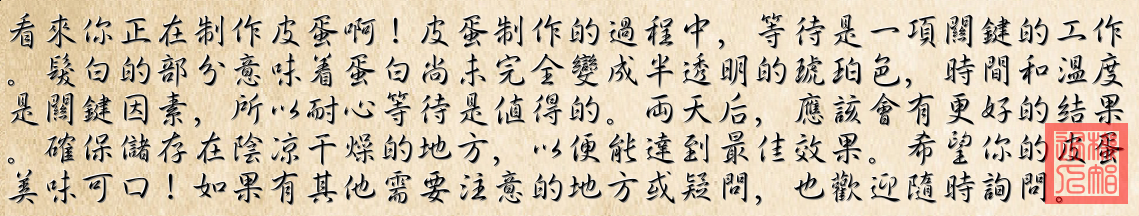 看來你正在制作皮蛋啊！皮蛋制作的過程中，等待是一項關鍵的工作
。髮白的部分意味着蛋白尚未完全變成半透明的琥珀色，時間和溫度
是關鍵因素，所以耐心等待是值得的。兩天后，應該會有更好的结果
。確保儲存在陰凉干燥的地方，以便能達到最佳效果。希望你的皮蛋
美味可口！如果有其他需要注意的地方或疑問，也歡迎隨時詢問。